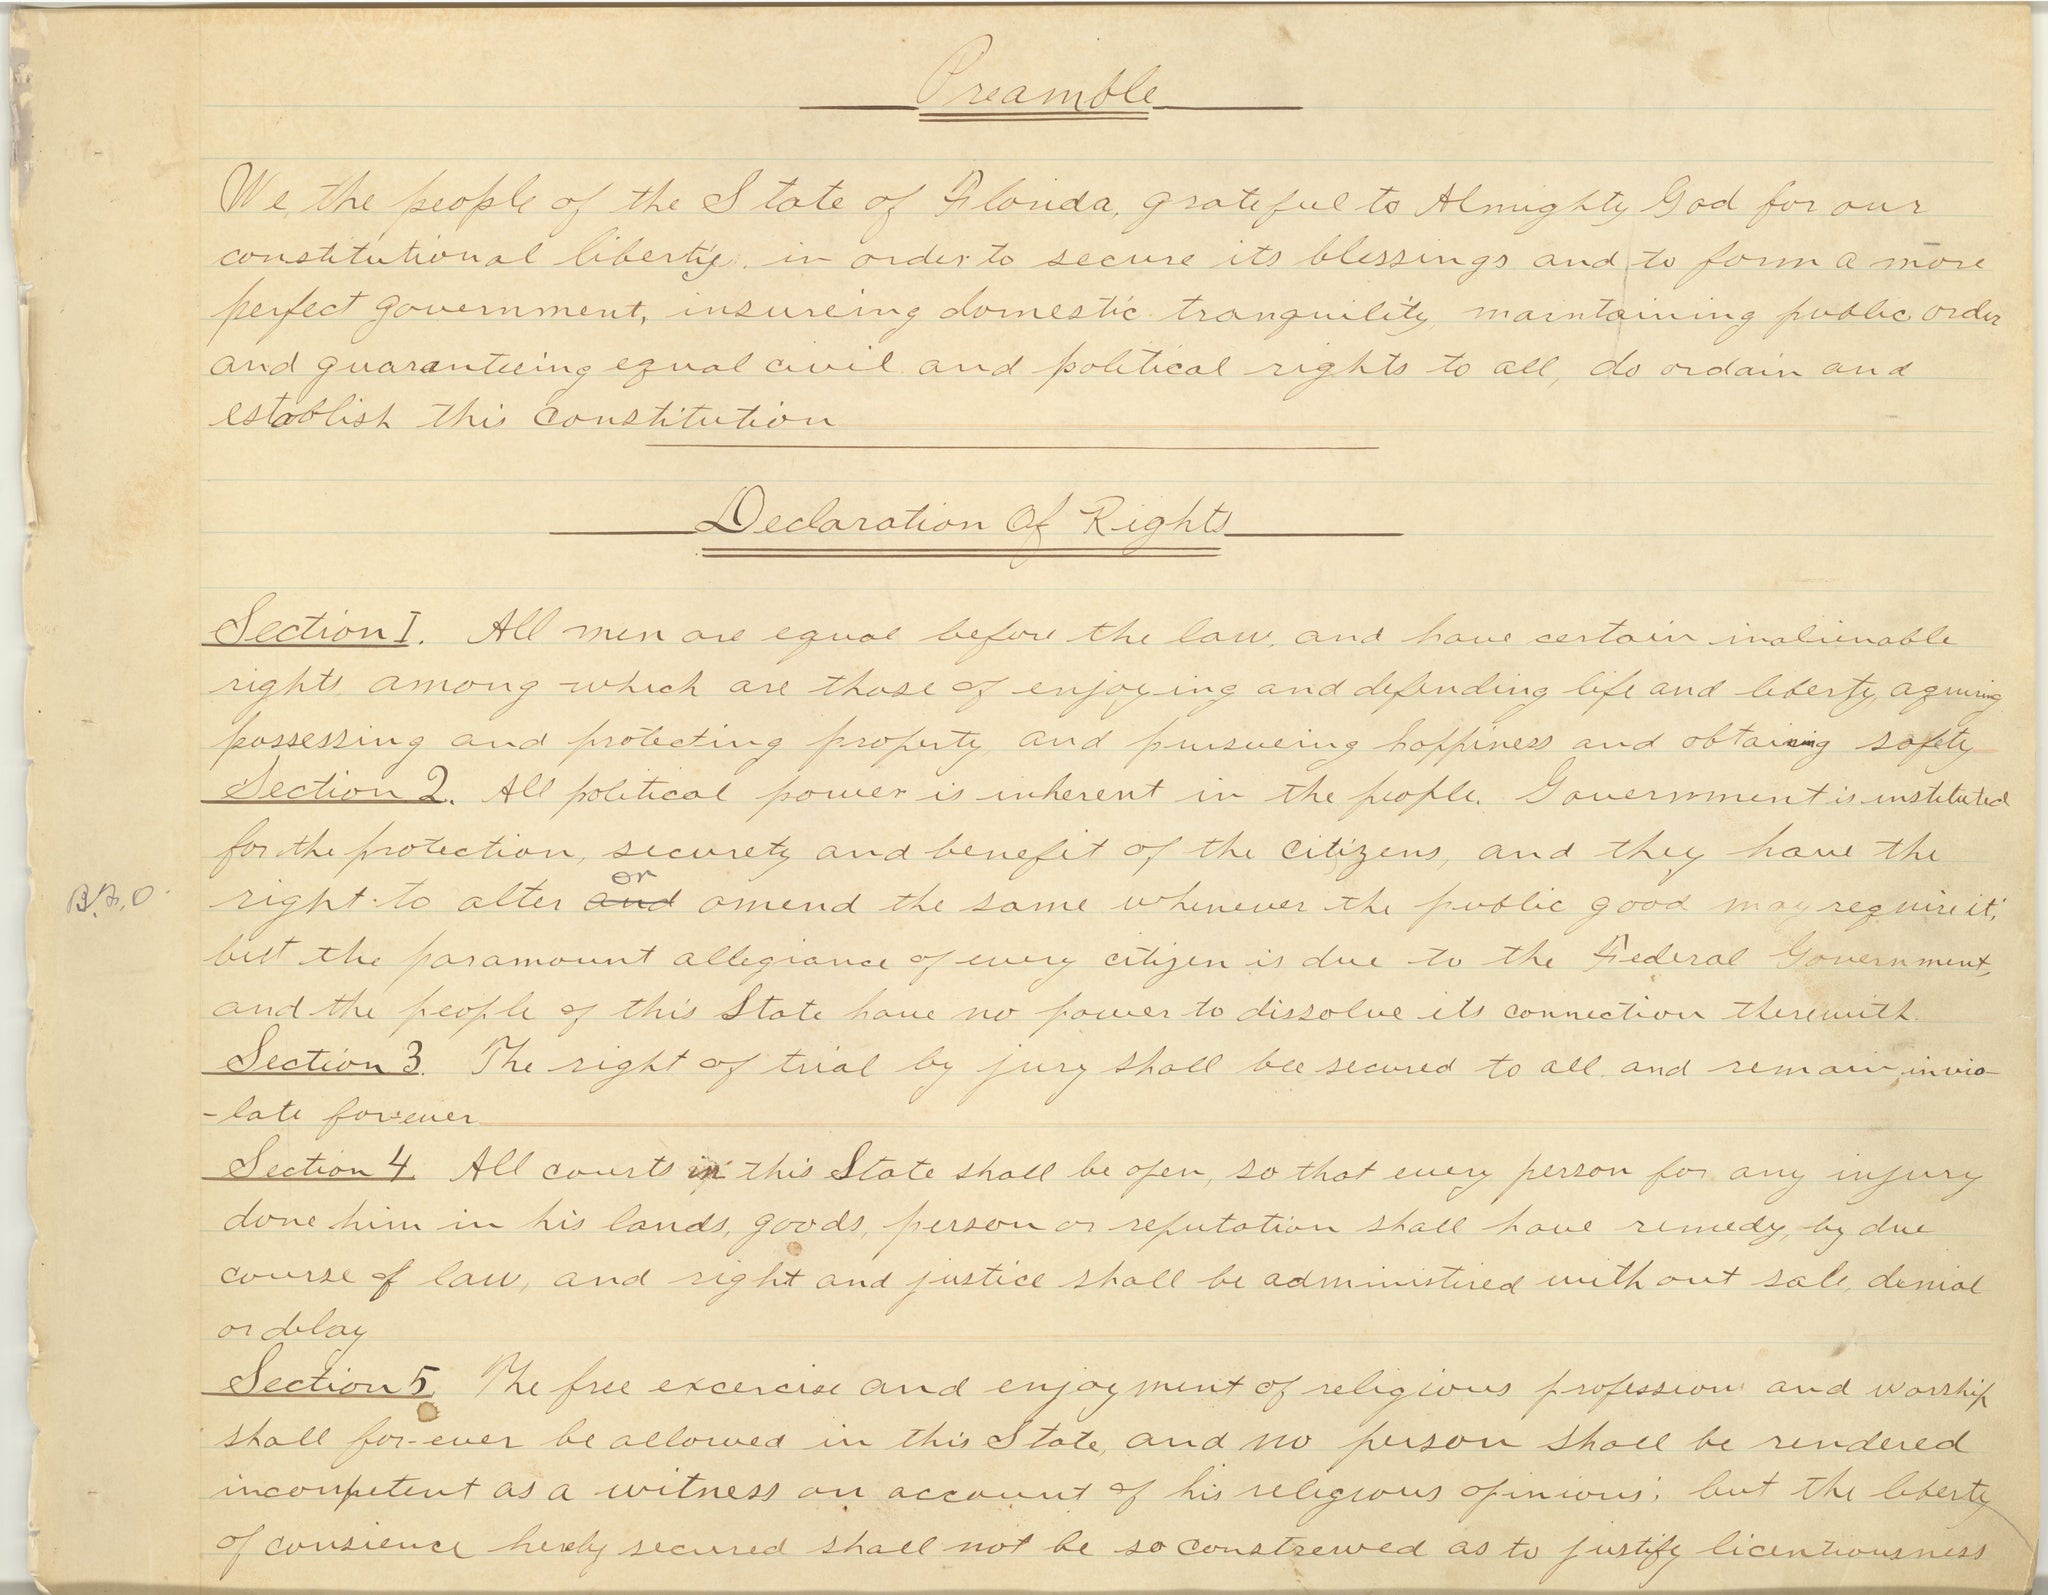 Preamble
We, the people of the State of Florida, grateful to Almighty God for our
constitutional libertie, in order to secure its blessings and to form a more
perfect government, insureing domestic tranquility, maintaining public order
and guaranteeing equal civil and political rights to all, do ordain and
establish this constitution
Declaration Of Rights
Section I. All men are equal before the law, and have certain inalienable
rights, among which are those of enjoying and defending life and liberty, aquiring
possessing and protecting property, and pursueing happiness and obtaining safety
Section 2. All political power is inherent in the people. Government is instituted
for the protection, securety and benefit of the citizens, and they have the
or
B.F.O. right to alter and amend the same whenever the public good may require it;
but the paramount allegiance of every citizen is due to the Federal Government,
and the people of this State have no power to dissolve its connection therewith.
Section 3. The right of trial by jury shall bee secured to all, and remain invio-
-late forever
Section 4. All courts in this State shall be open, so that every person for any injury
done him in his lands, goods, person or reputation shall have remedy, by due
course of law, and right and justice shall be administired without sale, denial
or delay
Section 5. The free excercise and enjoyment of religious profession and worship
shall for-ever be allowed in this State, and no person shall be rendered
incompetent as a witness on account of his religious opinions; but the liberty
of consience hereby secured shall not be so constrewed as to justify licentiousness